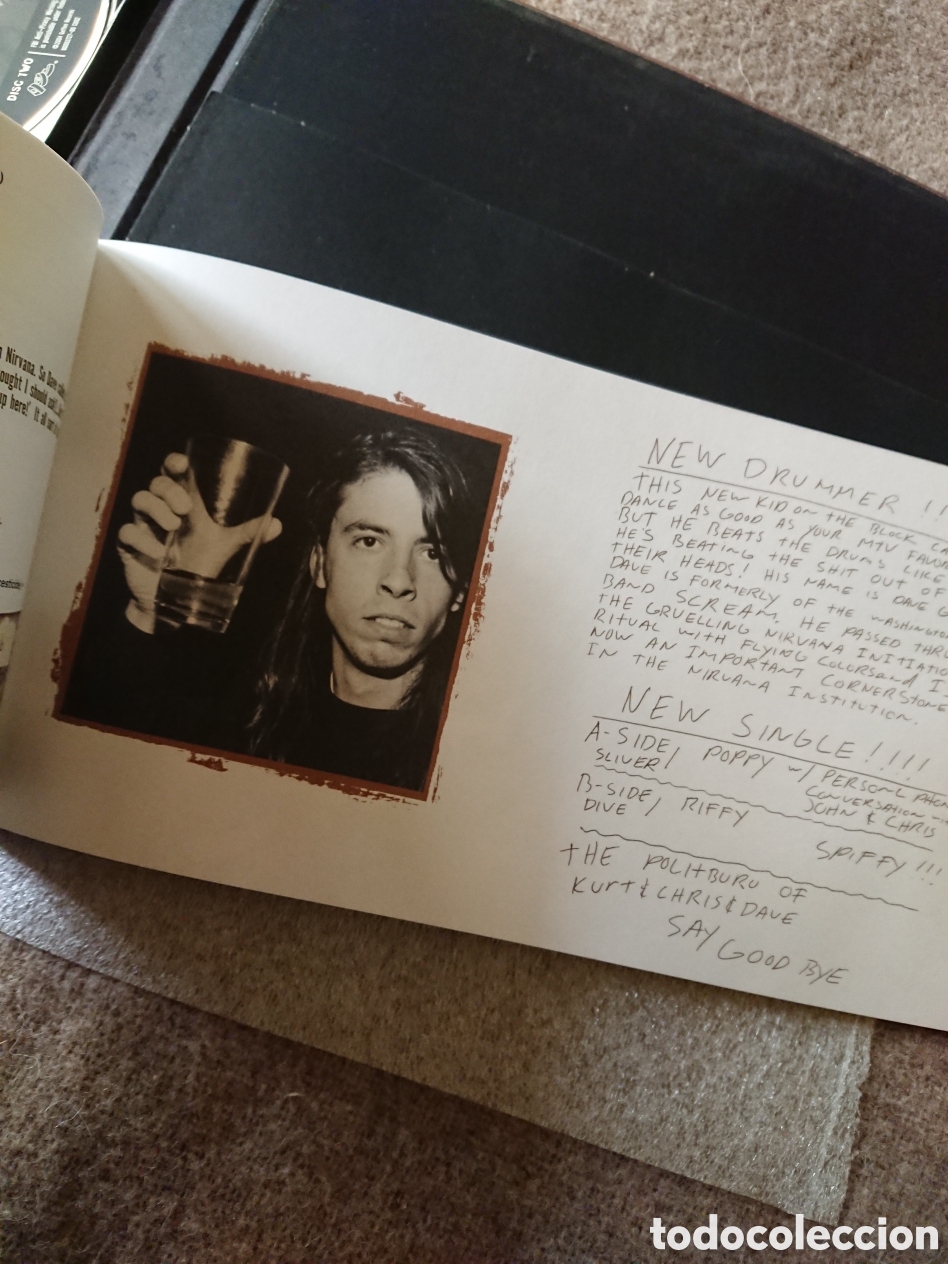 DISC TWO
n Nirvana. So Dave
ought I should
up here!" It all
NEW DRUMMER !!
THIS NEW KID ON THE BLOCK
DANCE AS GOOD AS YOUR MTV
BUT HE BEATS THE DRUMS LIKE
HE'S BEATING THE SHIT OUT OF
THEIR HEADS! HIS NAME IS DAVE
DAVE IS FORMERLY OF THE WASHINGTON
BAND SCREAM. HE PASSED
THE GRUELLING NIRVANA
RITUAL WITH FLYING COLORS and
NOW AN IMPORTANT CORNERSTONE
IN THE NIRVANA INSTITUTION.
NEW SINGLE!!!!
A-SIDE/ POPPY w/ PERSONL
SLIVER! CONVERSATION
JOHN & CHRIS
B-SIDE/ RIFFY
DIVE
SPIFFY!!!
THE POLITBURO OF
KURT & CHRIS & DAVE
SAY GOOD BYE
todocoleccion